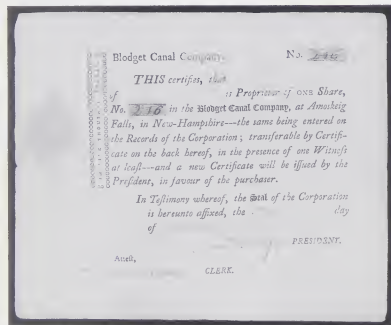 Blodget Canal Company.
No. 216
THIS certifies, that
of is Proprietor of ONE Share,
No. 216 in the Blodget Canal Company, at Amoskeig
Falls, in New-Hampshire---the same being entered on
the Records of the Corporation; transferable by Certifi-
cate on the back hereof, in the presence of one Witneſs
at leaſt---and a new Certificate will be iſſued by the
Preſident, in favour of the purchaser.
In Teſtimony whereof, the Seal of the Corporation
is hereunto affixed, the day
of
PRESIDENT.
Atteſt,
CLERK.